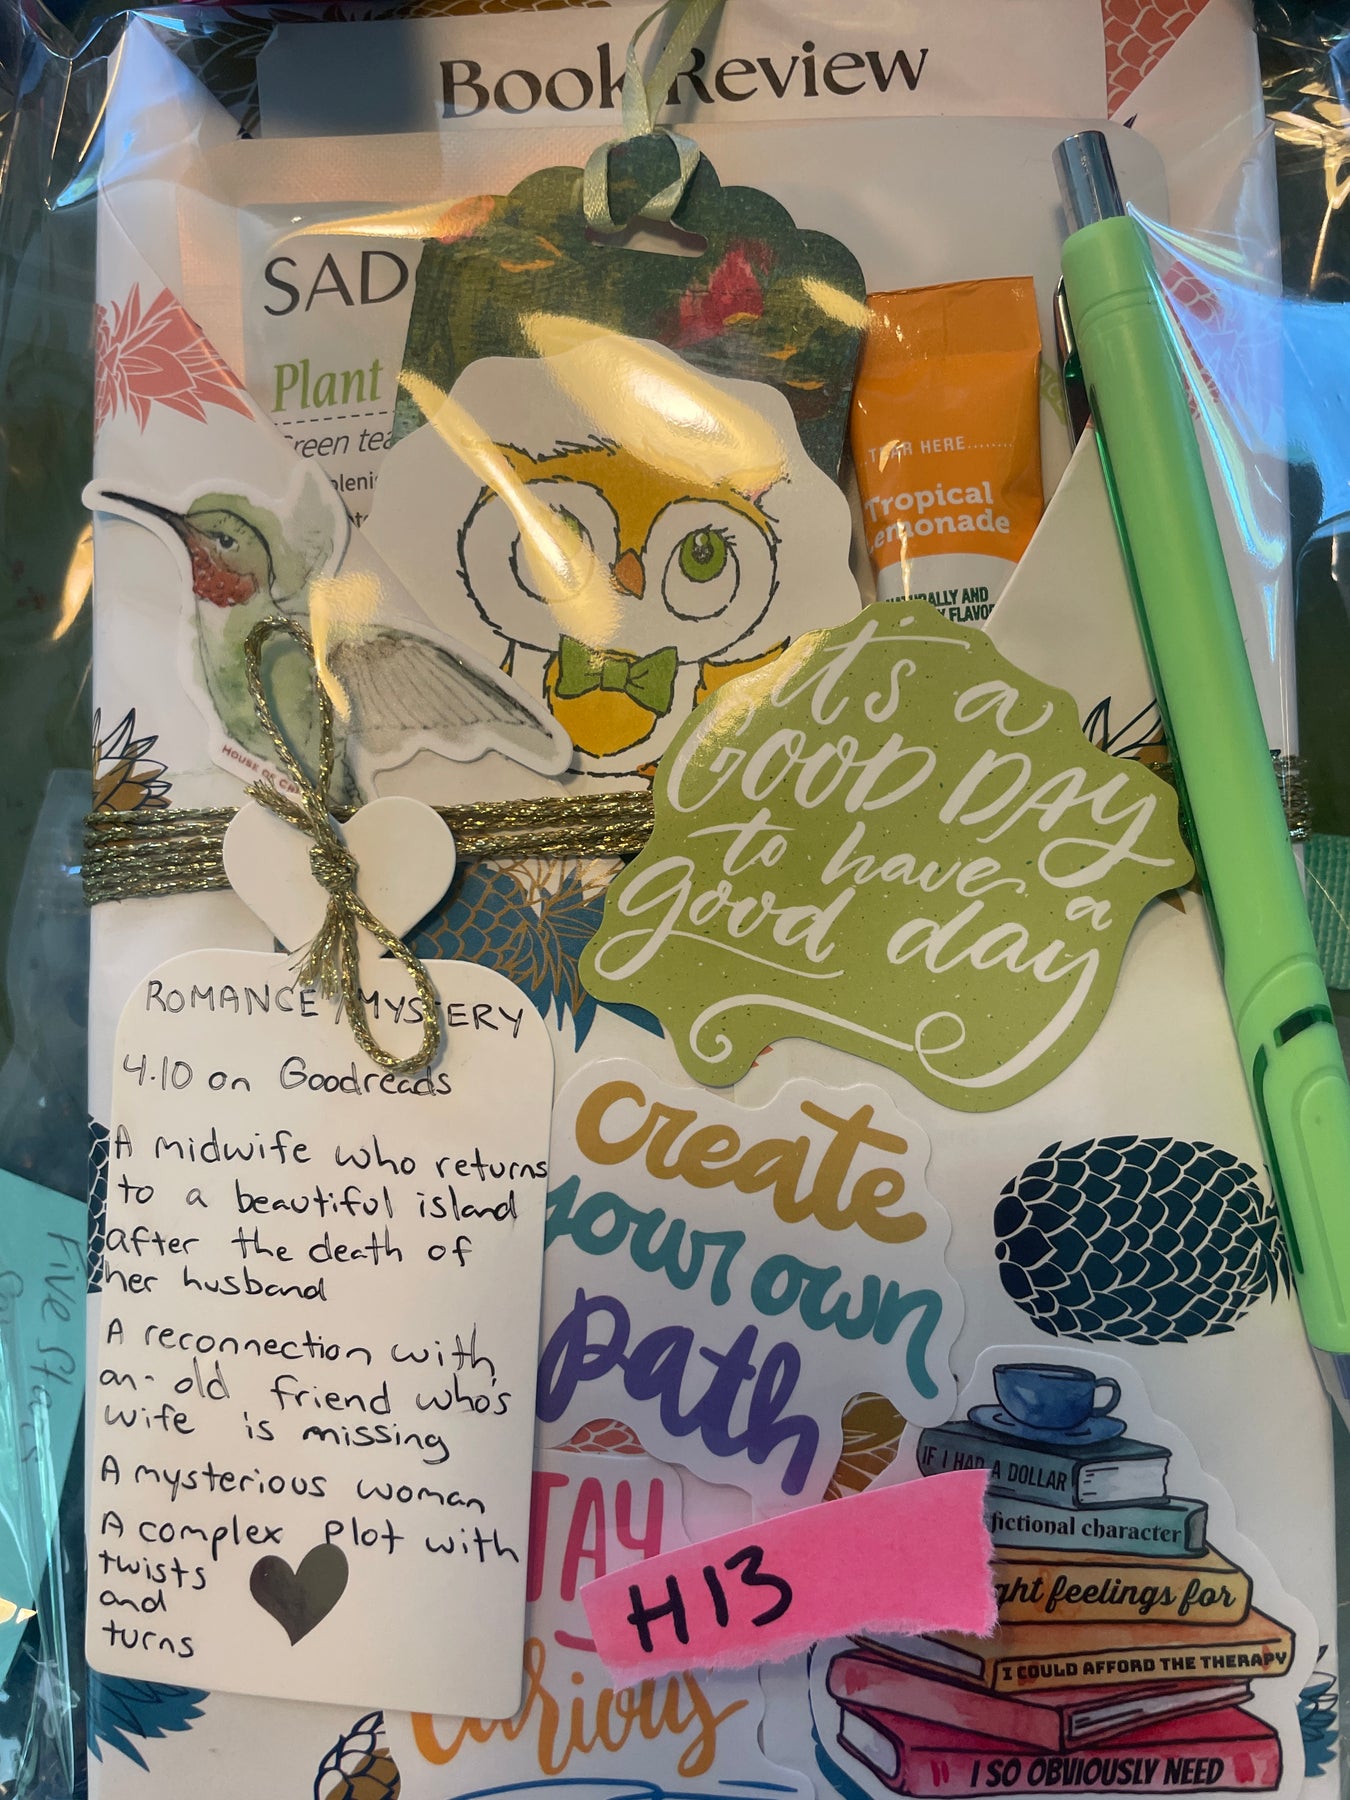 Book Review
SAD
Plant
Green tea
TEAR HERE........
Tropical
Lemonade
NATURALLY AND
FLAVOR
HOUSE OF
it's a
GOOD DAY
to have a
good day
ROMANCE/MYSTERY
4.10 on Goodreads
A midwife who returns
to a beautiful island
after the death of
her husband
A reconnection with
an old friend who's
wife is missing
A mysterious woman
A complex plot with
twists
and
turns
create
your own
path
STAY
curious
H13
IF I HAD A DOLLAR
fictional character
ght feelings for
I COULD AFFORD THE THERAPY
I SO OBVIOUSLY NEED
Five Stars